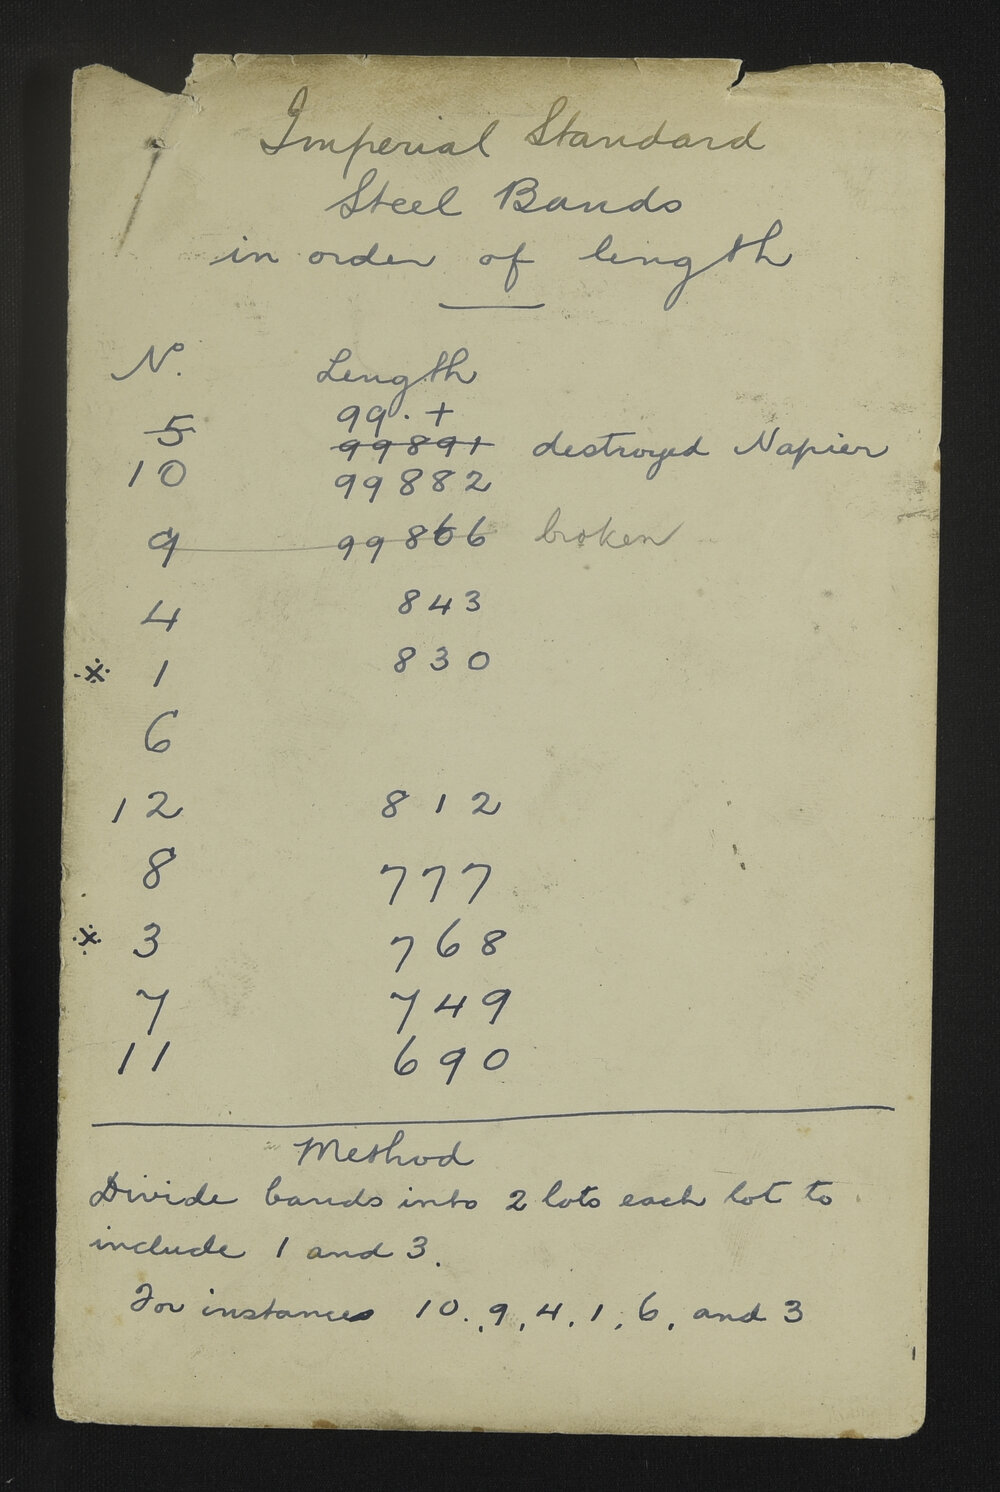 Imperial Standard
Steel Bands
in order of length
No. Length
99.+
5 99891 destroyed Napier
10 99882
9 99866 broken
4 843
※ 1 830
6
12 812
8 777
※ 3 768
7 749
11 690
Method
Divide bands into 2 lots each lot to
include 1 and 3.
For instance 10., 9, 4, 1, 6, and 3